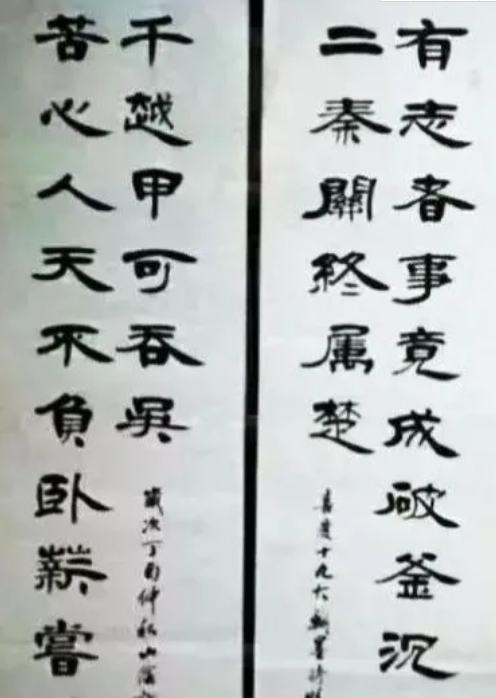 有志者事竟成破釜沉
二秦關終属楚
喜度十九大翰墨
苦心人天不負卧薪嘗
千越甲可吞吳
歲次丁酉仲秋山